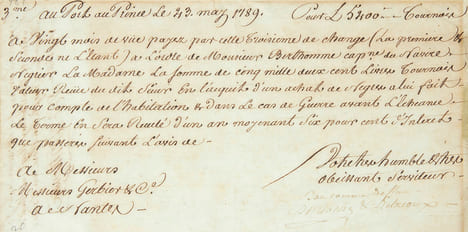 3.me au Port au Prince Le 23. may 1789. Pour L 5200 = Tournois
A Vingt mois de vüe payez par cette Troisieme de change (La premiere &
Seconde ne L'étant) a L'ordre de Monsieur Berthomme capne. du Navire
Negrier La Madame La Somme de Cinq mille deux cent Livres Tournois
Valeur Recüe du dit Sieur En L'acquit d'un achat de Negres a lui fait
pour compte de l'habitation & dans Le cas de Guerre avant L'Echeance
Le Terme en Sera Reculé d'un an moyenant Six pour cent d'Interet
que passerés Suivant L'avis de —
A Messieurs
Messieurs Gerbier & Co.
a Nantes
Votre tres humble & tres
obeissant Serviteur